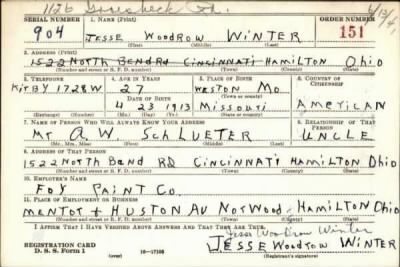 1126 Rd.
6/13/41
SERIAL NUMBER 1. NAME (Print) ORDER NUMBER
904 JESSE WOODROW WINTER 151
(First) (Middle) (Last)
2. ADDRESS (Print)
1522 NORTH BEND RD CINCINNATI HAMILTON OHIO
(Number and street or R. F. D. number) (Town) (County) (State)
3. TELEPHONE 4. AGE IN YEARS 5. PLACE OF BIRTH 6. COUNTRY OF CITIZENSHIP
KIRBY 1728W 27 WESTON MO.
DATE OF BIRTH
4 23 1913 MISSOURI AMERICAN
(Exchange) (Number) (Mo.) (Day) (Yr.) (State or country)
7. NAME OF PERSON WHO WILL ALWAYS KNOW YOUR ADDRESS 8. RELATIONSHIP OF THAT PERSON
Mr A.W. SCHLUETER UNCLE
(Mr., Mrs., Miss) (First) (Middle) (Last)
9. ADDRESS OF THAT PERSON
1522 NORTH BEND RD CINCINNATI HAMILTON OHIO
(Number and street or R. F. D. number) (Town) (County) (State)
10. EMPLOYER'S NAME
FOY PAINT CO.
11. PLACE OF EMPLOYMENT OR BUSINESS
MENTOR + HUSTON AV NORWOOD - HAMILTON OHIO
(Number and street or R. F. D. number) (Town) (County) (State)
I AFFIRM THAT I HAVE VERIFIED ABOVE ANSWERS AND THAT THEY ARE TRUE.
Jesse Woodrow Winter
REGISTRATION CARD
D. S. S. Form 1 16—17105 JESSE WOODROW WINTER
(Registrant's signature)